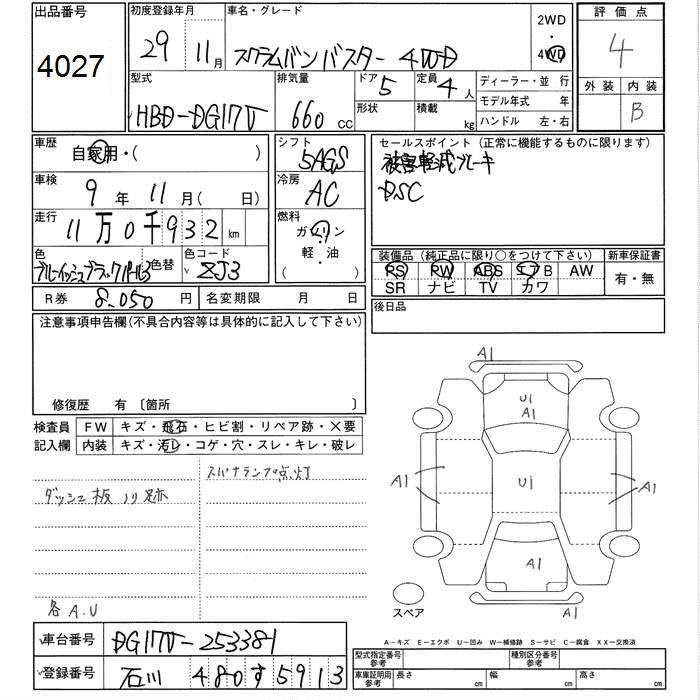 出品番号
4027
初度登録年月
29年11月
車名・グレード
スクラムバン バスター 4WD
2WD
・
4WD
評価点
4
外装 内装
B
型式
HBD-DG17V
排気量
660 CC
ドア 5
形状
定員 4人
積載 kg
ディーラー・並行
モデル年式 年
ハンドル 左・右
車歴
自家用・( )
車検
9年11月(日)
走行
11万0千932km
色
ブルーイッシュブラックパール3
色替
色コード
ZJ3
シフト
5AGS
冷房
AC
燃料
ガソリン
軽・油
( )
セールスポイント (正常に機能するものに限ります)
被害軽減ブレーキ
DSC
装備品 (純正品に限り○をつけて下さい)
PS PW ABS エアB AW
SR ナビ TV カワ
新車保証書
有・無
R券 8-050円
名変期限 月 日
後日品
注意事項申告欄(不具合内容等は具体的に記入して下さい)
修復歴 有 〔箇所 〕
検査員
記入欄
FW キズ・飛石・ヒビ割・リペア跡・×要
内装 キズ・汚レ・コゲ・穴・スレ・キレ・破レ
スパナランプ点灯
ダッシュ板ノリ跡
各A.U
A1
U1
A1
A1
U1
A1
A1
A1
スペア
A-キズ E-エクボ U-凹み W-補修跡 S-サビ C-腐食 XX-交換済
車台番号 DG17V-253381
登録番号 石川 480す5913
型式指定番号 参考
種別区分番号 参考
車庫証明用 参考 長さ cm 幅 cm 高さ cm